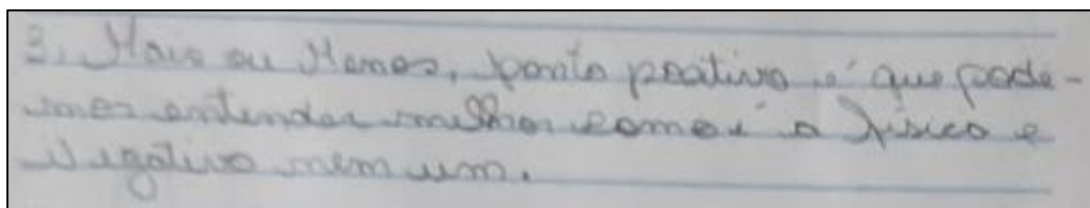 3. Mais ou Menos, ponto positivo é que pode-
mos entender melhor como é a física e
Negativo nem um.